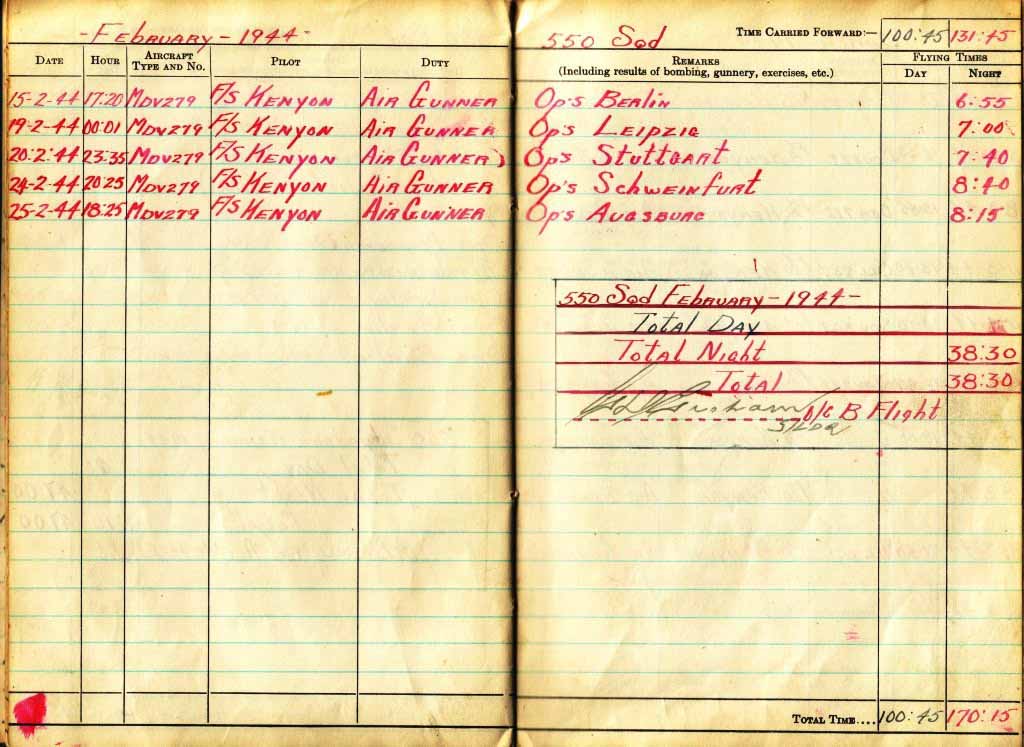 -February-1944-
550 Sqd TIME CARRIED FORWARD:— 100:45 131:45
DATE HOUR AIRCRAFT TYPE AND NO. PILOT DUTY REMARKS (Including results of bombing, gunnery, exercises, etc.) FLYING TIMES DAY NIGHT
15-2-44 17:20 MDV279 F/S KENYON AIR GUNNER Op's BERlin 6:55
19-2-44 00:01 MDV279 F/S KENYON AIR GUNNER Op's LEIPZIG 7:00
20-2-44 23:35 MDV279 F/S KENYON AIR GUNNER Ops STUTTGART 7:40
24-2-44 20:25 MDV279 F/S KENYON AIR GUNNER Op's SCHWEINFURT 8:40
25-2-44 18:25 MDV279 F/S KENYON AIR GUNNER Op's AUGSBURG 8:15
550 Sqd FEBRUARY-1944-
TOTAL DAY
TOTAL Night 38:30
TOTAL 38:30
Graham O/C B Flight
S/LDR
TOTAL TIME.... 100:45 170:15